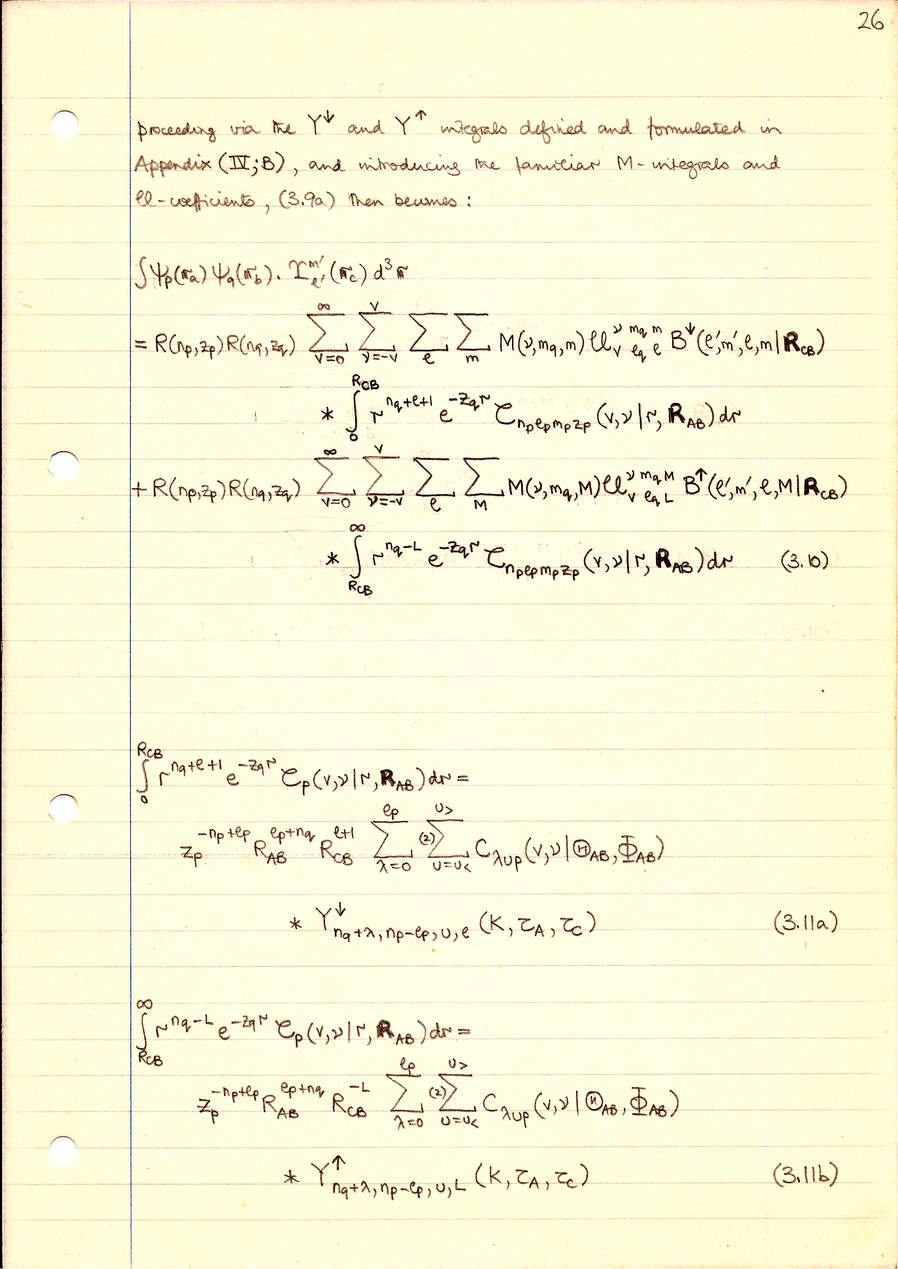 26
proceeding via the Y↓ and Y↑ integrals defined and formulated in
Appendix (IV; B), and introducing the familiar M-integrals and
𝒰-coefficients, (3.9a) then becomes :
∫ψ_p(r_a) ψ_q(r_b) . Υ_{ℓ'}^{m'} (r_c) d³r
= R(n_p,z_p) R(n_q,z_q) ∑_{v=0}^{∞} ∑_{ν=-v}^{v} ∑_ℓ ∑_m M(ν,m_q,m) 𝒰_{v ℓ_q ℓ}^{ν m_q m} B↓(ℓ',m',ℓ,m|R_CB)
* ∫_0^{R_CB} r^{n_q+ℓ+1} e^{-z_q r} 𝒞_{n_p ℓ_p m_p z_p} (v,ν|r, R_AB) dr
+ R(n_p,z_p) R(n_q,z_q) ∑_{v=0}^{∞} ∑_{ν=-v}^{v} ∑_ℓ ∑_M M(ν,m_q,M) 𝒰_{v ℓ_q L}^{ν m_q M} B↑(ℓ',m',ℓ,M|R_CB)
* ∫_{R_CB}^{∞} r^{n_q-L} e^{-z_q r} 𝒞_{n_p ℓ_p m_p z_p} (v,ν|r, R_AB) dr (3.10)
∫_0^{R_CB} r^{n_q+ℓ+1} e^{-z_q r} 𝒞_p(v,ν|r,R_AB) dr =
z_p^{-n_p+ℓ_p} R_AB^{ℓ_p+n_q} R_CB^{ℓ+1} ∑_{λ=0}^{ℓ_p} ⁽²⁾∑_{υ=υ<}^{υ>} C_{λυp}(v,ν|Θ_AB,Φ_AB)
* Y↓_{n_q+λ, n_p-ℓ_p, υ, ℓ} (K, τ_A, τ_C) (3.11a)
∫_{R_CB}^{∞} r^{n_q-L} e^{-z_q r} 𝒞_p(v,ν|r, R_AB) dr =
z_p^{-n_p+ℓ_p} R_AB^{ℓ_p+n_q} R_CB^{-L} ∑_{λ=0}^{ℓ_p} ⁽²⁾∑_{υ=υ<}^{υ>} C_{λυp}(v,ν|Θ_AB, Φ_AB)
* Y↑_{n_q+λ, n_p-ℓ_p, υ, L} (K, τ_A, τ_C) (3.11b)